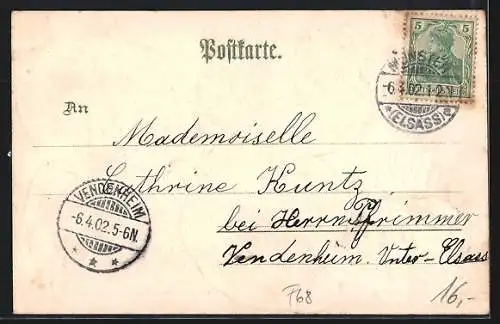 Postkarte.
5 5
MÜNSTER
-6.4.02.1-2.N.
*(ELSASS)*
An
Mademoiselle
Cathrine Kuntz
bei Herrn Primmer
Vendenheim. Unter-Elsass
VENDENHEIM
-6.4.02.5-6N.
* * *
F68
16,-